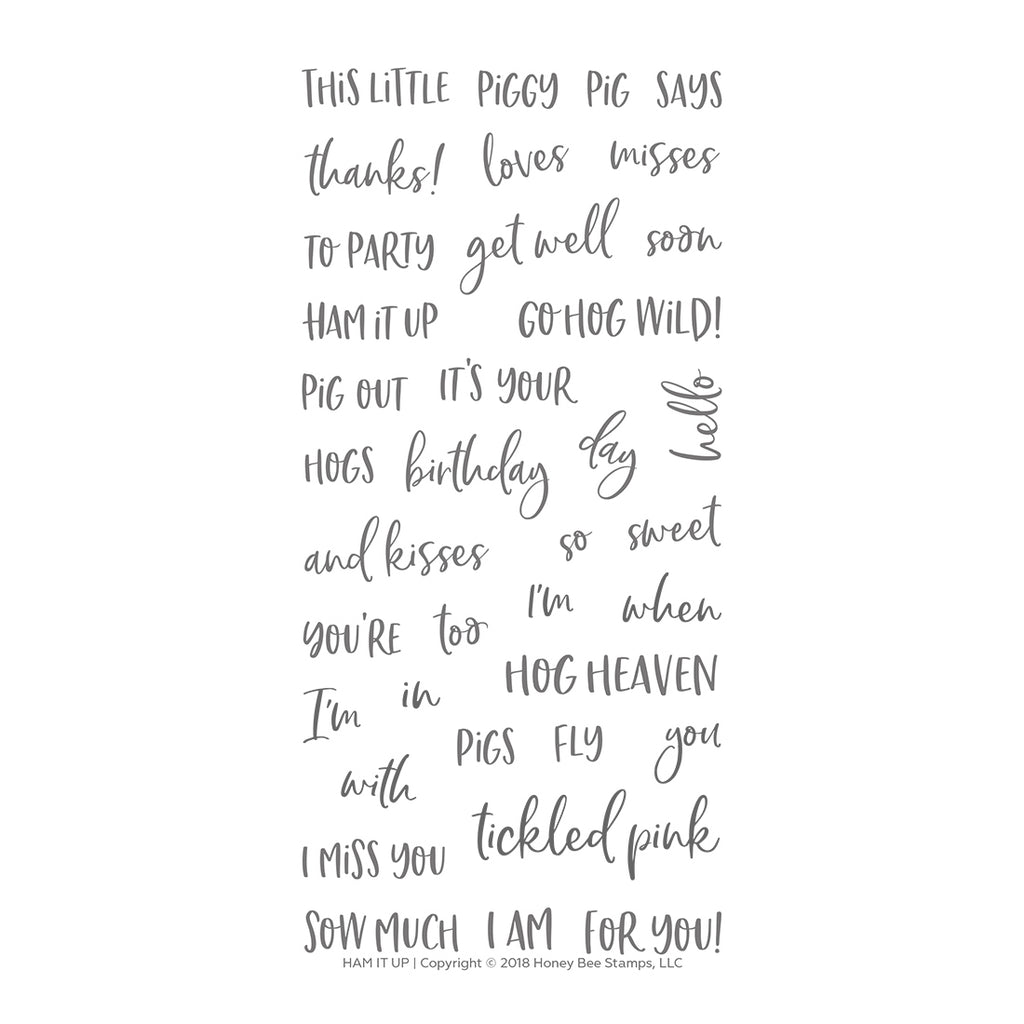 THiS LiTTLE PiGGY PiG SAYS
thanks! loves misses
TO PARTY get well soon
HAM iT UP GO HOG WiLD!
PiG OUT IT'S YOUR hello
HOGS birthday day
and kisses so sweet
YOU'RE too I'm when
I'm in HOG HEAVEN
with PiGS FLY you
I MiSS YOU tickled pink
SOW MUCH I AM FOR YOU!
HAM IT UP | Copyright © 2018 Honey Bee Stamps, LLC